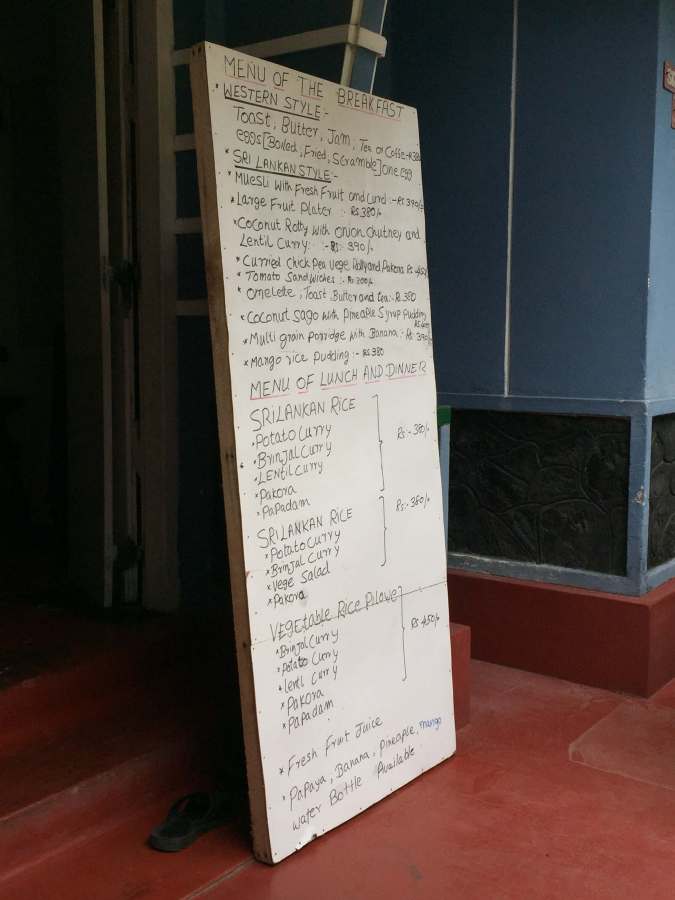 MENU OF THE BREAKFAST
* WESTERN STYLE:-
Toast, Butter, Jam, Tea or Coffe-R380
eggs[Boiled, Fried, Scramble] one egg
* SRI LANKAN STYLE:-
* Muesli with Fresh Fruit and curd:- Rs 390/=
* Large Fruit Plater :- Rs 380/=
* Coconut Rotty with onion Chutney and
Lentil Curry: :- Rs. 390/-
* Curried Chick pea vege Rotty and Pakora Rs 450
* Tomato Sandwiches :- Rs 200/=
* omelete, Toast, Butter and tea:- R.380
* Coconut Sago with Pineapple Syrup Pudding
* Multi grain porridge with Banana :- Rs. 390/=
* Mango rice pudding :- Rs 380
MENU OF LUNCH AND DINNER
SRILANKAN RICE
* Potato curry
* Brinjal curry
* LENtil curry
* Pakora
* Papadam
Rs:- 380/=
SRILANKAN RICE
* Potato curry
* Brinjal curry
* Vege Salad
* Pakora
Rs:- 380/=
VEGEtable Rice Pilawe
* Brinjal curry
* Potato curry
* lentil curry
* Pakora
* Papadam
Rs 450/=
* Fresh Fruit Juice
* Papaya, Banana, Pineapple, mango
water Bottle Available